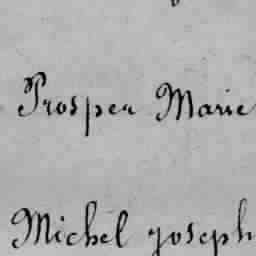 Prosper Marie
Michel joseph